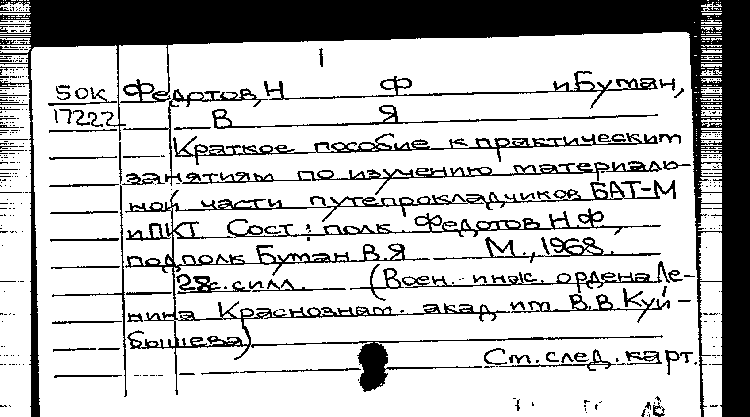 1
50к Федотов, Н Ф и Бутман,
17222 В Я
Краткое пособие к практическим
занятиям по изучению материаль-
ной части путепрокладчиков БАТ-М
и ПКТ Сост: полк. Федотов Н.Ф,
подполк Бутман В.Я М., 1968.
28с. силл. (Воен.-инж. ордена Ле-
нина Краснознам. акад им. В.В. Куй-
бышева)
Ст. след. карт.